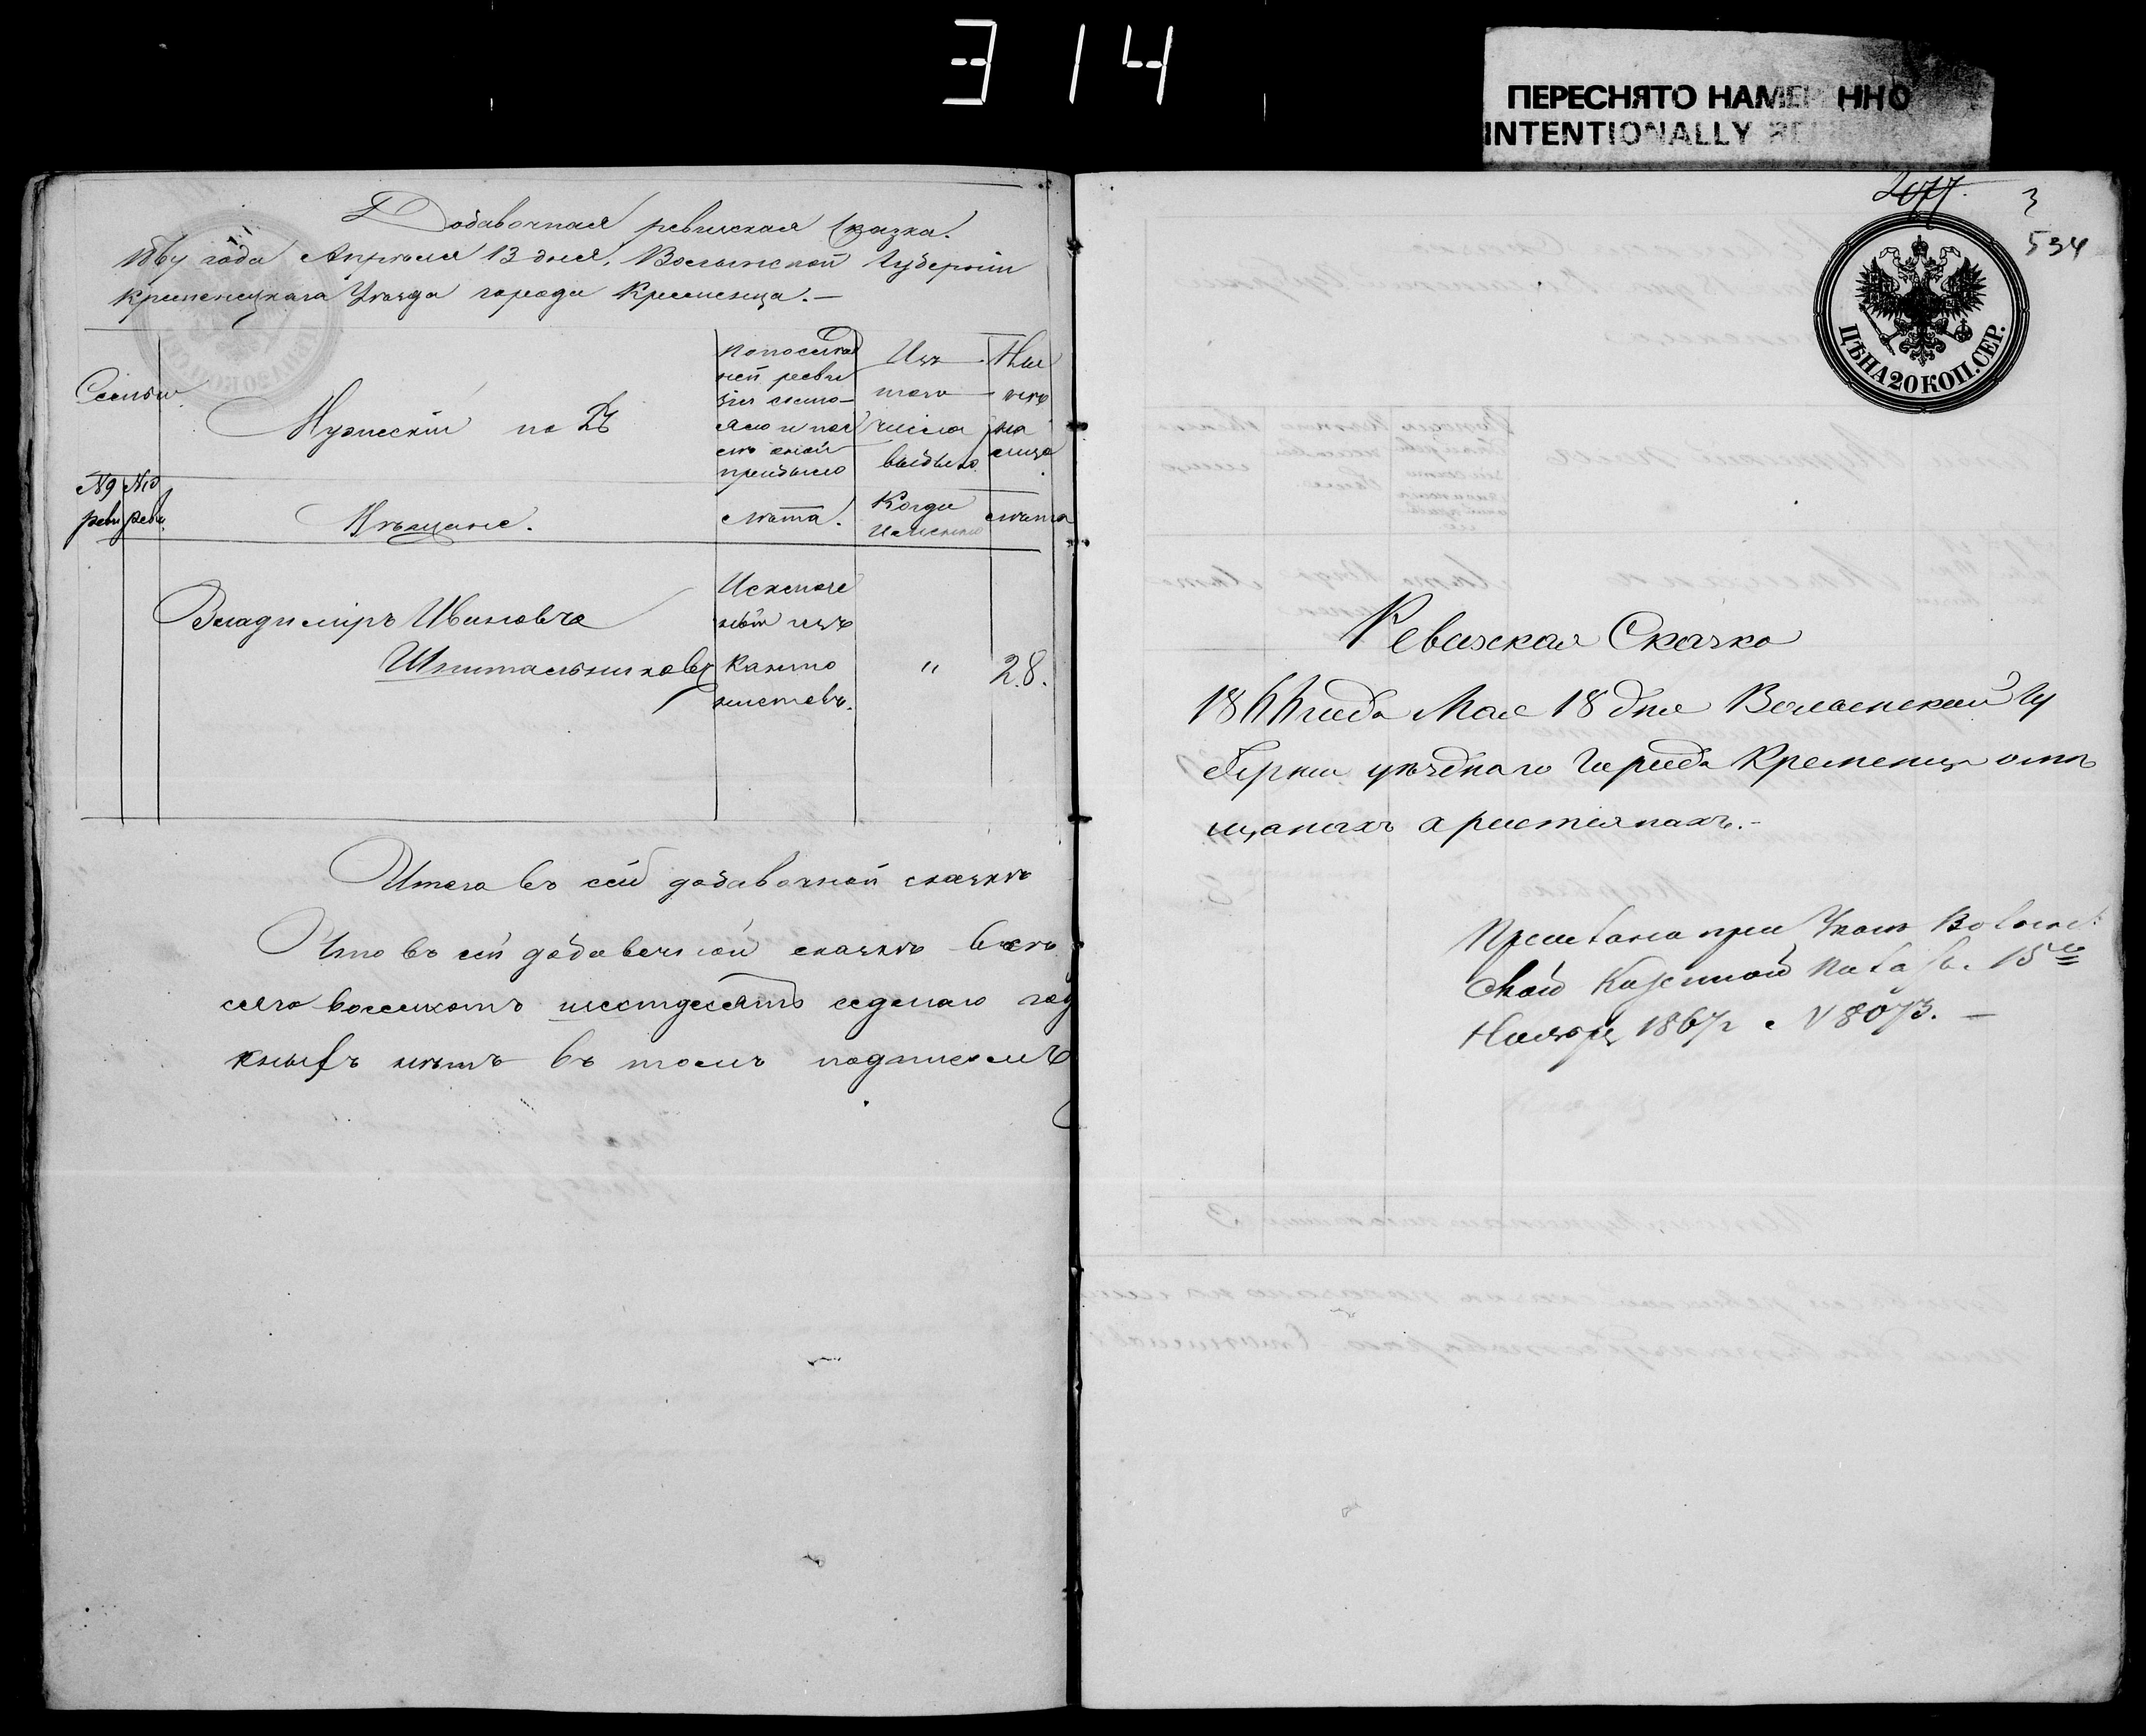 314
ПЕРЕСНЯТО НАМЕРЕННО
INTENTIONALLY
Добавочная ревизская сказка.
1867 года Апреля 13 дня, Волынской Губернии
Кременецкаго Уезда города Кременца.—
Семьи
Мужескій полъ
По послед
ней реви
зіи состо-
яло и пос
ле оной
прибыло
Изъ
того
числа
выбыло
Ны
не
на
лицо
№ 9 № 10
реви реви.
Мѣщане.
лѣта.
Когда
именно
лѣта
Владиміръ Ивановъ
Шпитальниковъ
Исключе
ный изъ
Канто
нистовъ.
"
28.
Итого въ сей добавочной сказкѣ
Что въ сей добавочной сказкѣ
восемсотъ шестдесятъ седмаго
нѣтъ въ томъ
2077.
3
534
ЦѢНА 20 КОП. СЕР.
Ревизская Сказка
1866 года Мая 18 дня Волынской Гу
берніи уѣзднаго Города Кременца о мѣ
щанахъ христіянахъ.—
Прислана при Указѣ Волын
ской Казенной Палаты 15го
Ноября 1867 г № 8073.—